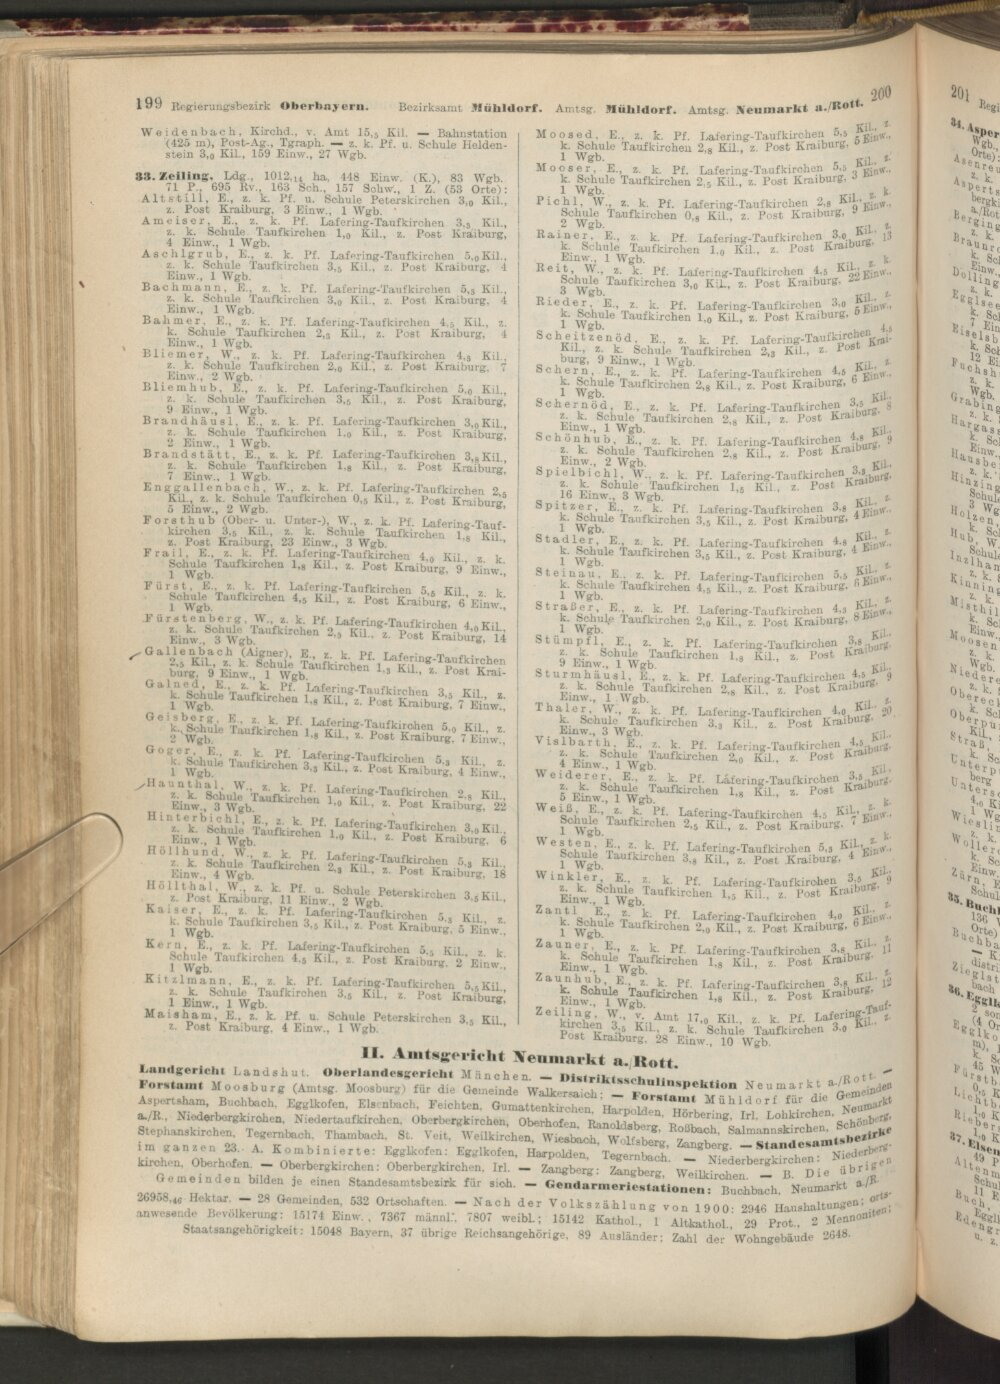 199 Regierungsbezirk Oberbayern. Bezirksamt Mühldorf. Amtsg. Mühldorf. Amtsg. Neumarkt a./Rott. 200
Weidenbach, Kirchd., v. Amt 15,5 Kil. — Bahnstation
(425 m), Post-Ag., Tgraph. — z. k. Pf. u. Schule Helden-
stein 3,0 Kil., 159 Einw., 27 Wgb.
33. Zeiling, Ldg., 1012,14 ha, 448 Einw. (K.), 83 Wgb.
71 P., 695 Rv., 163 Sch., 157 Schw., 1 Z. (53 Orte):
Altstill, E., z. k. Pf. u. Schule Peterskirchen 3,0 Kil.,
z. Post Kraiburg, 3 Einw., 1 Wgb.
Ameiser, E., z. k. Pf. Lafering-Taufkirchen 3,5 Kil.,
z. k. Schule Taufkirchen 1,0 Kil., z. Post Kraiburg,
4 Einw., 1 Wgb.
Aschlgrub, E., z. k. Pf. Lafering-Taufkirchen 5,0 Kil.,
z. k. Schule Taufkirchen 3,5 Kil., z. Post Kraiburg, 4
Einw., 1 Wgb.
Bachmann, E., z. k. Pf. Lafering-Taufkirchen 5,5 Kil.,
z. k. Schule Taufkirchen 3,0 Kil., z. Post Kraiburg, 4
Einw., 1 Wgb.
Bahmer, E., z. k. Pf. Lafering-Taufkirchen 4,5 Kil., z.
k. Schule Taufkirchen 2,3 Kil., z. Post Kraiburg, 4
Einw., 1 Wgb.
Bliemer, W., z. k. Pf. Lafering-Taufkirchen 4,3 Kil.,
z. k. Schule Taufkirchen 2,0 Kil., z. Post Kraiburg, 7
Einw., 2 Wgb.
Bliemhub, E., z. k. Pf. Lafering-Taufkirchen 5,0 Kil.,
z. k. Schule Taufkirchen 3,5 Kil., z. Post Kraiburg,
9 Einw., 1 Wgb.
Brandhäusl, E., z. k. Pf. Lafering-Taufkirchen 3,0 Kil.,
z. k. Schule Taufkirchen 1,0 Kil., z. Post Kraiburg,
2 Einw., 1 Wgb.
Brandstätt, E., z. k. Pf. Lafering-Taufkirchen 3,8 Kil.,
z. k. Schule Taufkirchen 1,8 Kil., z. Post Kraiburg,
7 Einw., 1 Wgb.
Enggallenbach, W., z. k. Pf. Lafering-Taufkirchen 2,5
Kil., z. k. Schule Taufkirchen 0,5 Kil., z. Post Kraiburg,
5 Einw., 2 Wgb.
Forsthub (Ober- u. Unter-), W., z. k. Pf. Lafering-Tauf-
kirchen 3,5 Kil., z. k. Schule Taufkirchen 1,8 Kil.,
z. Post Kraiburg, 23 Einw., 3 Wgb.
Frail, E., z. k. Pf. Lafering-Taufkirchen 4,0 Kil., z. k.
Schule Taufkirchen 1,8 Kil., z. Post Kraiburg, 9 Einw.,
1 Wgb.
Fürst, E., z. k. Pf. Lafering-Taufkirchen 5,5 Kil., z. k.
Schule Taufkirchen 4,5 Kil., z. Post Kraiburg, 6 Einw.,
1 Wgb.
Fürstenberg, W., z. k. Pf. Lafering-Taufkirchen 4,0 Kil.,
z. k. Schule Taufkirchen 2,5 Kil., z. Post Kraiburg, 14
Einw., 3 Wgb.
Gallenbach (Aigner), E., z. k. Pf. Lafering-Taufkirchen
2,5 Kil., z. k. Schule Taufkirchen 1,3 Kil., z. Post Krai-
burg, 9 Einw., 1 Wgb.
Galned, E., z. k. Pf. Lafering-Taufkirchen 3,5 Kil., z.
k. Schule Taufkirchen 1,8 Kil., z. Post Kraiburg, 7 Einw.,
1 Wgb.
Geisberg, E., z. k. Pf. Lafering-Taufkirchen 5,0 Kil., z.
k. Schule Taufkirchen 1,8 Kil., z. Post Kraiburg, 7 Einw.,
2 Wgb.
Goger, E., z. k. Pf. Lafering-Taufkirchen 5,3 Kil., z.
k. Schule Taufkirchen 3,3 Kil., z. Post Kraiburg, 4 Einw.,
1 Wgb.
Haunthal, W., z. k. Pf. Lafering-Taufkirchen 2,8 Kil.,
z. k. Schule Taufkirchen 1,0 Kil., z. Post Kraiburg, 22
Einw., 3 Wgb.
Hinterbichl, E., z. k. Pf. Lafering-Taufkirchen 3,0 Kil.,
z. k. Schule Taufkirchen 1,0 Kil., z. Post Kraiburg, 6
Einw., 1 Wgb.
Höllhund, W., z. k. Pf. Lafering-Taufkirchen 5,3 Kil.,
z. k. Schule Taufkirchen 2,3 Kil., z. Post Kraiburg, 18
Einw., 4 Wgb.
Höllthal, W., z. k. Pf. u. Schule Peterskirchen 3,5 Kil.,
z. Post Kraiburg, 11 Einw., 2 Wgb.
Kaiser, E., z. k. Pf. Lafering-Taufkirchen 5,3 Kil., z.
k. Schule Taufkirchen 3,5 Kil., z. Post Kraiburg, 5 Einw.,
1 Wgb.
Kern, E., z. k. Pf. Lafering-Taufkirchen 5,5 Kil., z. k.
Schule Taufkirchen 4,5 Kil., z. Post Kraiburg, 2 Einw.,
1 Wgb.
Kitzlmann, E., z. k. Pf. Lafering-Taufkirchen 5,5 Kil.,
z. k. Schule Taufkirchen 3,5 Kil., z. Post Kraiburg,
1 Einw., 1 Wgb.
Maisham, E., z. k. Pf. u. Schule Peterskirchen 3,5 Kil.,
z. Post Kraiburg, 4 Einw., 1 Wgb.
Moosed, E., z. k. Pf. Lafering-Taufkirchen 5,5 Kil., z.
k. Schule Taufkirchen 2,8 Kil., z. Post Kraiburg, 5 Einw.,
1 Wgb.
Mooser, E., z. k. Pf. Lafering-Taufkirchen 5,5 Kil., z.
k. Schule Taufkirchen 2,5 Kil., z. Post Kraiburg, 3 Einw.,
1 Wgb.
Pichl, W., z. k. Pf. Lafering-Taufkirchen 2,8 Kil., z. k.
Schule Taufkirchen 0,8 Kil., z. Post Kraiburg, 9 Einw.,
2 Wgb.
Rainer, E., z. k. Pf. Lafering-Taufkirchen 3,0 Kil., z.
k. Schule Taufkirchen 1,0 Kil., z. Post Kraiburg, 13
Einw., 1 Wgb.
Reit, W., z. k. Pf. Lafering-Taufkirchen 4,5 Kil., z. k.
Schule Taufkirchen 3,0 Kil., z. Post Kraiburg, 22 Einw.,
3 Wgb.
Rieder, E., z. k. Pf. Lafering-Taufkirchen 3,0 Kil., z.
k. Schule Taufkirchen 1,0 Kil., z. Post Kraiburg, 5 Einw.,
1 Wgb.
Scheitzenöd, E., z. k. Pf. Lafering-Taufkirchen 4,5
Kil., z. k. Schule Taufkirchen 2,3 Kil., z. Post Krai-
burg, 9 Einw., 1 Wgb.
Schern, E., z. k. Pf. Lafering-Taufkirchen 4,5 Kil., z.
k. Schule Taufkirchen 2,8 Kil., z. Post Kraiburg, 6 Einw.,
1 Wgb.
Schernöd, E., z. k. Pf. Lafering-Taufkirchen 3,5 Kil.,
z. k. Schule Taufkirchen 2,8 Kil., z. Post Kraiburg, 8
Einw., 1 Wgb.
Schönhub, E., z. k. Pf. Lafering-Taufkirchen 4,8 Kil.,
z. k. Schule Taufkirchen 2,8 Kil., z. Post Kraiburg, 9
Einw., 2 Wgb.
Spielbichl, W., z. k. Pf. Lafering-Taufkirchen 3,5 Kil.,
z. k. Schule Taufkirchen 1,5 Kil., z. Post Kraiburg,
16 Einw., 3 Wgb.
Spitzer, E., z. k. Pf. Lafering-Taufkirchen 3,8 Kil., z.
k. Schule Taufkirchen 3,5 Kil., z. Post Kraiburg, 4 Einw.,
1 Wgb.
Stadler, E., z. k. Pf. Lafering-Taufkirchen 4,8 Kil., z.
k. Schule Taufkirchen 3,5 Kil., z. Post Kraiburg, 4 Einw.,
1 Wgb.
Steinau, E., z. k. Pf. Lafering-Taufkirchen 5,5 Kil., z.
k. Schule Taufkirchen 4,5 Kil., z. Post Kraiburg, 5 Einw.,
1 Wgb.
Straßer, E., z. k. Pf. Lafering-Taufkirchen 4,3 Kil., z.
k. Schule Taufkirchen 2,0 Kil., z. Post Kraiburg, 8 Einw.,
1 Wgb.
Stümpfl, E., z. k. Pf. Lafering-Taufkirchen 3,8 Kil.,
z. k. Schule Taufkirchen 1,8 Kil., z. Post Kraiburg,
9 Einw., 1 Wgb.
Sturmhäusl, E., z. k. Pf. Lafering-Taufkirchen 4,5 Kil.,
z. k. Schule Taufkirchen 2,8 Kil., z. Post Kraiburg, 9
Einw., 1 Wgb.
Thaler, W., z. k. Pf. Lafering-Taufkirchen 4,0 Kil., z.
k. Schule Taufkirchen 3,3 Kil., z. Post Kraiburg, 20
Einw., 3 Wgb.
Vislbarth, E., z. k. Pf. Lafering-Taufkirchen 4,5 Kil.,
z. k. Schule Taufkirchen 2,0 Kil., z. Post Kraiburg,
4 Einw., 1 Wgb.
Weiderer, E., z. k. Pf. Lafering-Taufkirchen 3,5 Kil.,
z. k. Schule Taufkirchen 1,8 Kil., z. Post Kraiburg,
5 Einw., 1 Wgb.
Weiß, E., z. k. Pf. Lafering-Taufkirchen 4,5 Kil., z. k.
Schule Taufkirchen 2,5 Kil., z. Post Kraiburg, 7 Einw.,
1 Wgb.
Westen, E., z. k. Pf. Lafering-Taufkirchen 5,3 Kil., z. k.
Schule Taufkirchen 3,8 Kil., z. Post Kraiburg, 4 Einw.,
1 Wgb.
Winkler, E., z. k. Pf. Lafering-Taufkirchen 3,5 Kil.,
z. k. Schule Taufkirchen 1,5 Kil., z. Post Kraiburg, 9
Einw., 1 Wgb.
Zantl E., z. k. Pf. Lafering-Taufkirchen 4,0 Kil., z.
k. Schule Taufkirchen 2,0 Kil., z. Post Kraiburg, 6 Einw.,
1 Wgb.
Zauner, E., z. k. Pf. Lafering-Taufkirchen 3,8 Kil., z.
k. Schule Taufkirchen 1,8 Kil., z. Post Kraiburg, 11
Einw., 1 Wgb.
Zaunhub, E., z. k. Pf. Lafering-Taufkirchen 3,8 Kil., z.
k. Schule Taufkirchen 1,8 Kil., z. Post Kraiburg, 12
Einw., 1 Wgb.
Zeiling, W., v. Amt 17,0 Kil., z. k. Pf. Lafering-Tauf-
kirchen 3,5 Kil., z. k. Schule Taufkirchen 3,0 Kil., z.
Post Kraiburg, 28 Einw., 10 Wgb.
II. Amtsgericht Neumarkt a./Rott.
Landgericht Landshut. Oberlandesgericht München. — Distriktsschulinspektion Neumarkt a./Rott. —
Forstamt Moosburg (Amtsg. Moosburg) für die Gemeinde Walkersaich; — Forstamt Mühldorf für die Gemeinden
Aspertsham, Buchbach, Egglkofen, Elsenbach, Feichten, Gumattenkirchen, Harpolden, Hörbering, Irl, Lohkirchen, Neumarkt
a./R., Niederbergkirchen, Niedertaufkirchen, Oberbergkirchen, Oberhofen, Ranoldsberg, Roßbach, Salmannskirchen, Schönberg,
Stephanskirchen, Tegernbach, Thambach, St. Veit, Weilkirchen, Wiesbach, Wolfsberg, Zangberg. — Standesamtsbezirke
im ganzen 23. A. Kombinierte: Egglkofen: Egglkofen, Harpolden, Tegernbach. — Niederbergkirchen: Niederberg-
kirchen, Oberhofen. — Oberbergkirchen: Oberbergkirchen, Irl. — Zangberg: Zangberg, Weilkirchen. — B. Die übrigen
Gemeinden bilden je einen Standesamtsbezirk für sich. — Gendarmeriestationen: Buchbach, Neumarkt a./R.
26958,46 Hektar. — 28 Gemeinden, 532 Ortschaften. — Nach der Volkszählung von 1900: 2946 Haushaltungen; orts-
anwesende Bevölkerung: 15174 Einw., 7367 männl., 7807 weibl.; 15142 Kathol., 1 Altkathol., 29 Prot., 2 Mennoniten;
Staatsangehörigkeit: 15048 Bayern, 37 übrige Reichsangehörige, 89 Ausländer; Zahl der Wohngebäude 2648.
201 Regi
34. Asper